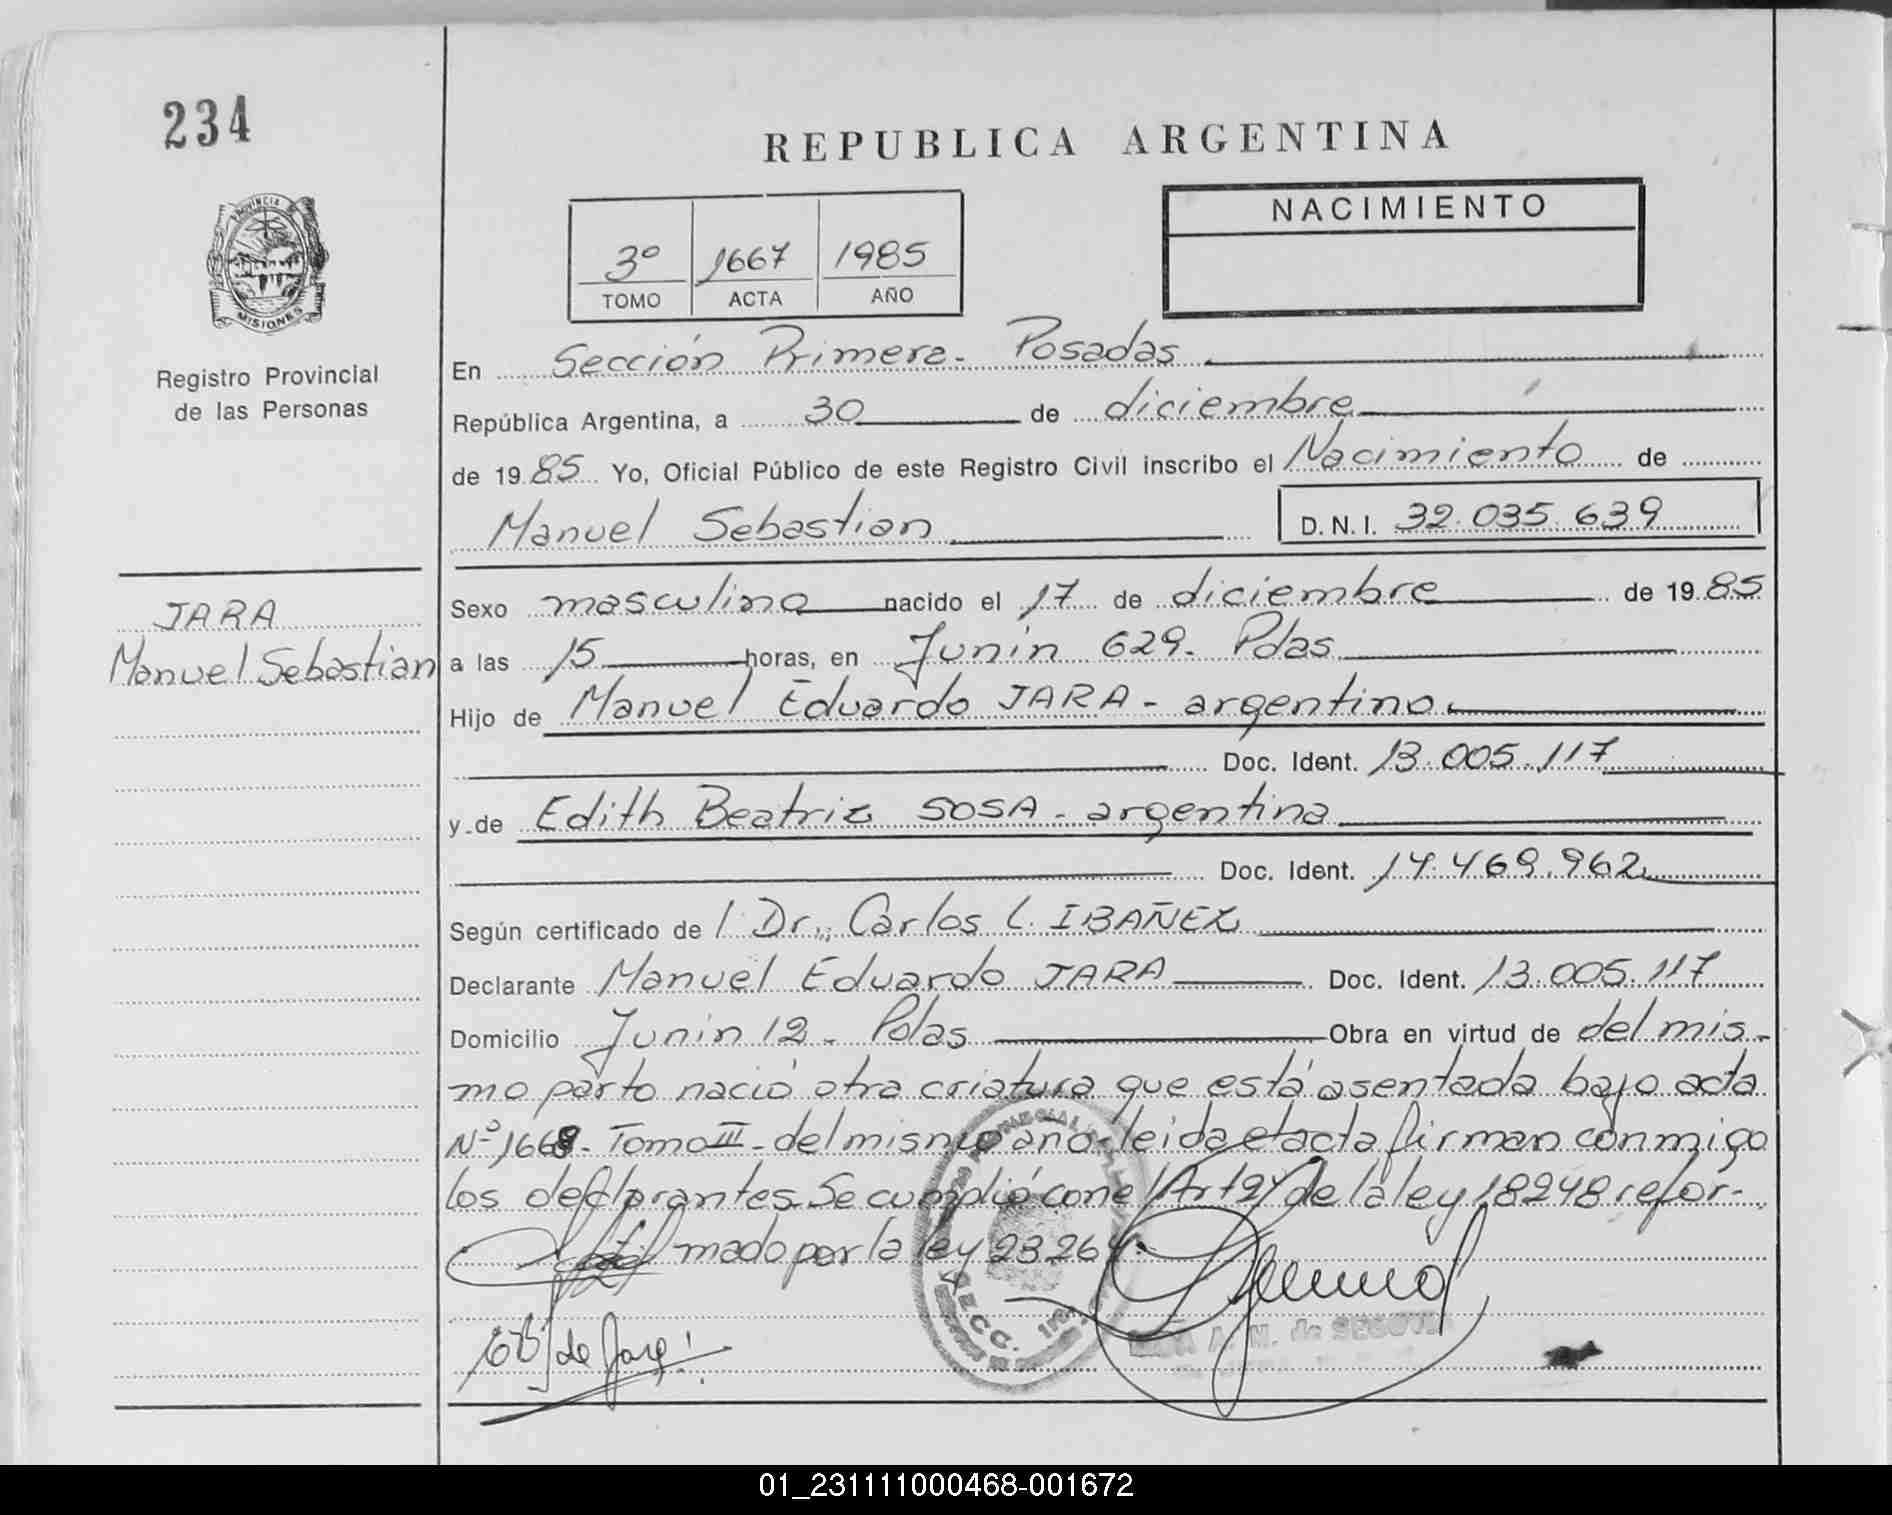 234
REPUBLICA ARGENTINA
PROVINCIA DE
MISIONES
Registro Provincial
de las Personas
3º 1667 1985
TOMO ACTA AÑO
NACIMIENTO
En Sección Primera - Posadas
República Argentina, a 30 de diciembre
de 1985 Yo, Oficial Público de este Registro Civil inscribo el Nacimiento de
Manuel Sebastian D.N.I. 32.035.639
JARA
Manuel Sebastian
Sexo masculino nacido el 17 de diciembre de 1985
a las 15 horas, en Junin 629 - Pdas
Hijo de Manuel Eduardo JARA - argentino
Doc. Ident. 13.005.117
y de Edith Beatriz SOSA - argentina
Doc. Ident. 14.469.962
Según certificado de l Dr. Carlos L. IBAÑEZ
Declarante Manuel Eduardo JARA Doc. Ident. 13.005.117
Domicilio Junin 12 - Pdas Obra en virtud de del mis-
mo parto nació otra criatura que está asentada bajo acta
Nº 1668 - Tomo III - del mismo año - leida el acta firman conmigo
los declarantes. Se cumplió con el Art 24 de la ley 18248 refor-
mado por la ley 23264.
de Jara
A. M. de SEGOVIA
01_231111000468-001672